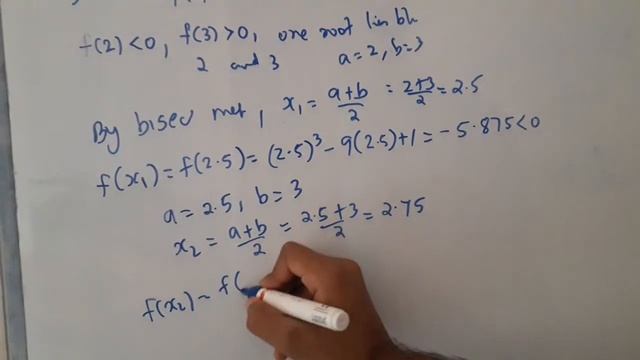 f(2) < 0, f(3) > 0, one root lies bh
2 and 3 a = 2, b = 3
By bisec met, x₁ = (a+b)/2 = (2+3)/2 = 2.5
f(x₁) = f(2.5) = (2.5)³ - 9(2.5) + 1 = -5.875 < 0
a = 2.5, b = 3
x₂ = (a+b)/2 = (2.5+3)/2 = 2.75
f(x₂) = f(